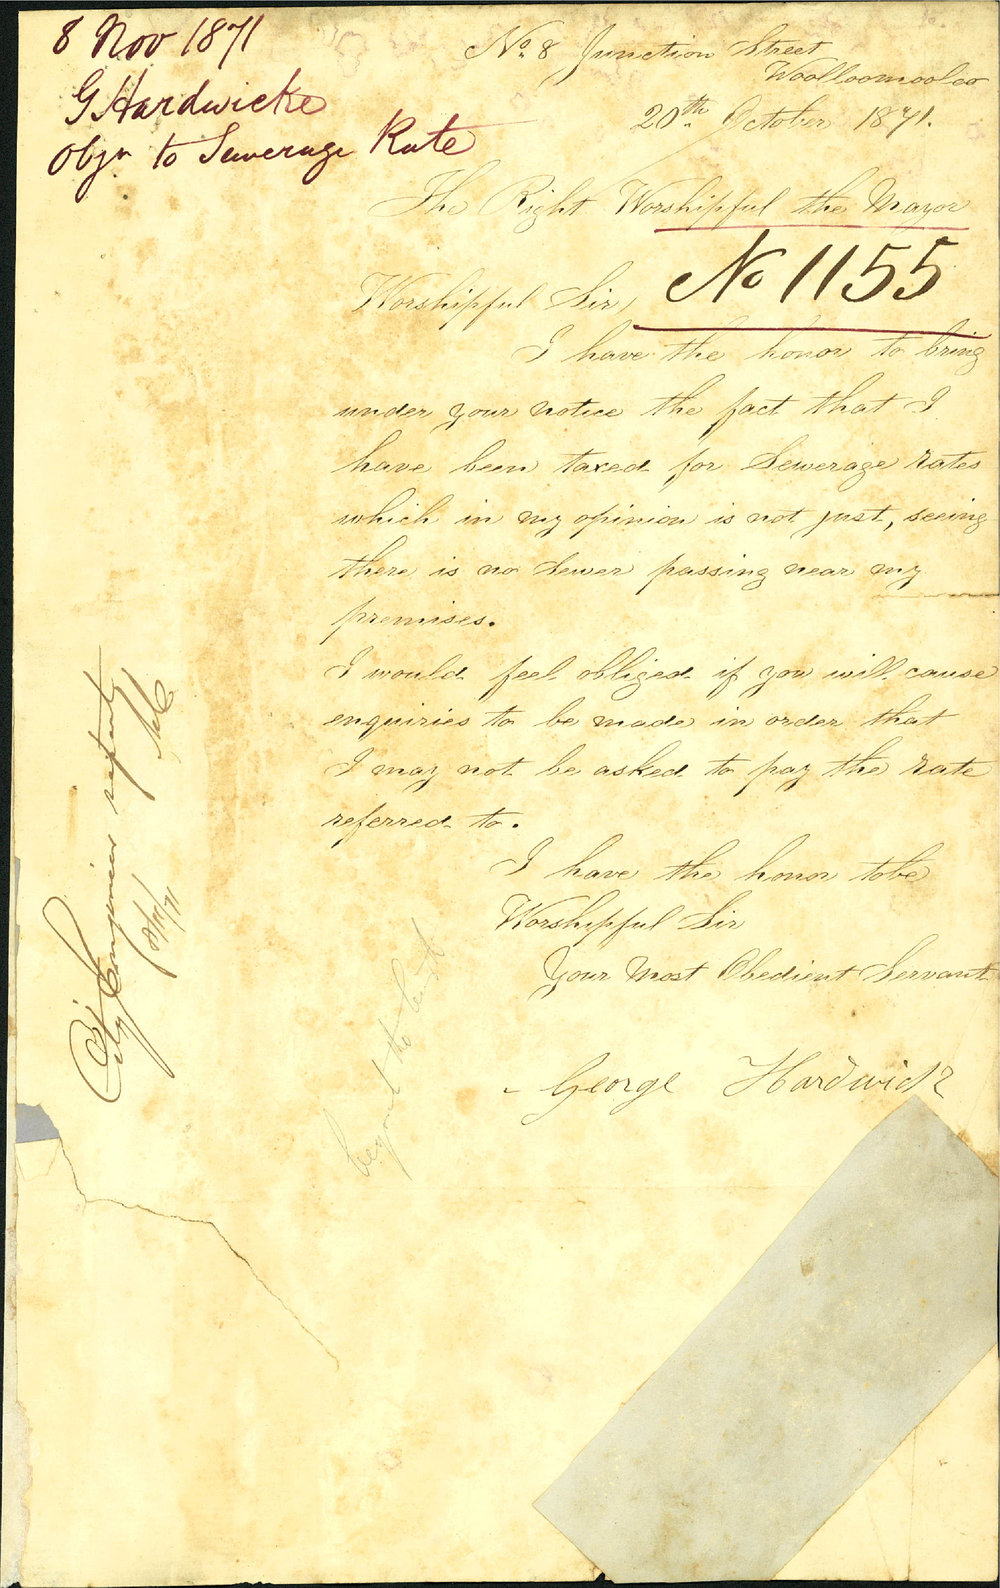 8 Nov 1871
G Hardwicke
Objn to Sewerage Rate
No. 8 Junction Street
Woolloomooloo
20th October 1871.
The Right Worshipful the Mayor
No 1155
Worshipful Sir,
I have the honor to bring
under your notice the fact that I
have been taxed for Sewerage rates
which in my opinion is not just, seeing
there is no Sewer passing near my
premises.
I would feel obliged if you will cause
enquiries to be made in order that
I may not be asked to pay the rate
referred to.
I have the honor tobe
Worshipful Sir
Your Most Obedient Servant
George Hardwick
City Engineer report
8/11/71
beyond the